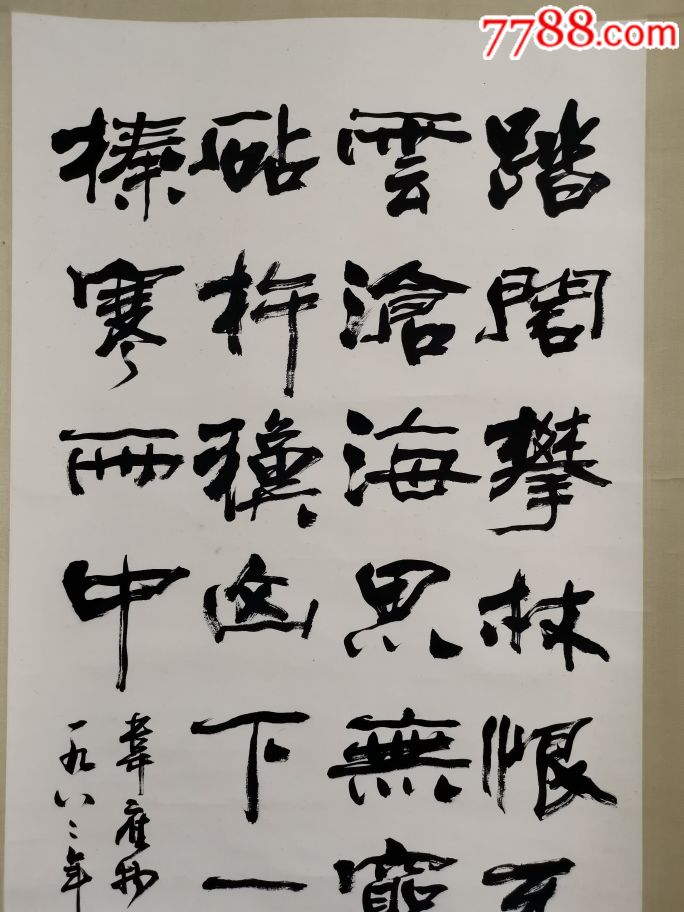 踏閣攀林恨不
雲滄海思無窮
砧杵穐山下一
榛寒雨中
韋應物
一九八二年
7788.com